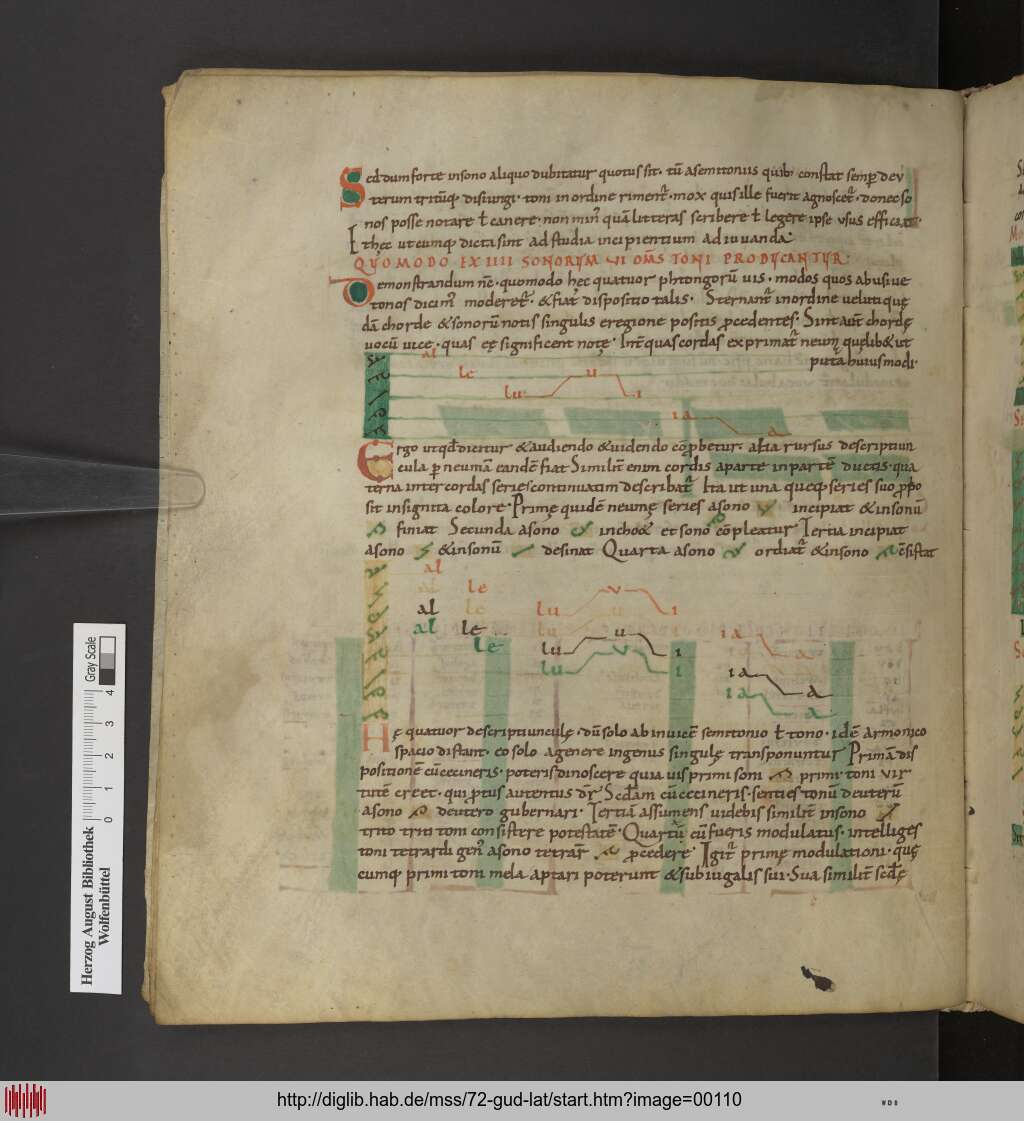 Sed dum forte in sono aliquo dubitatur quotus sit. tū a semitoniis quib; constat semp̄ deu
terum tritūq; disiungi. toni in ordine riment᷑. mox quis ille fuerit agnoscet᷑. donec so
nos posse notare ł canere. non min᷒ quā litteras scribere ł legere ipse usus efficiat.
Et hęc utcumq; dicta sint ad studia incipientium adiuuanda.
QUOMODO EX IIII SONORUM UI OMS TONI PRODUCANTUR.
Demonstrandum nc̄. quomodo hęc quatuor phtongorū uis. modos quos abusiue
tonos dicim᷒ moderet᷑. & fiat dispositio talis. Sternant᷑ in ordine uelut quę
dā chorde & sonorū notis singulis e regione positis p̄cedentes. Sint aūt chordę
uocū uice. quas eę significent notę. Int᷑ quas cordas exprimat᷑ neum quęlib& ut
puta huiusmodi.
al
le
lu u i
ia a
Ergo ut qd̄ dicitur & audiendo & uidendo cōp̄betur. alia rursus descriptiun
cula p̄ neumā eandē fiat Similit̄ enim cordis a parte in partē ductis. qua
terna inter cordas series continuatim describat᷑ Ita ut una queq; series suo p̄p̄o
sit insignita colore. Primę quidē neumę series a sono incipiat & in sonū
finiat Secunda a sono incho& et sono cōpleatur Tertia incipiat
a sono & in sonū desinat Quarta a sono ordiat᷑ & in sono c̄sistat
al
al le
al le lu v i
al le lu u i
le lu u i ia a
lu v i
ia a
ia a
Hę quatuor descriptiunculę. dū solo ab inuicē semitonio ł tono. idē armonico
spacio distant. eo solo a genere in genus singulę transponuntur Primā dis
positionē cū cecineris. poteris dinoscere quia uis primi soni primi toni vir
tutē creet. qui p̄tus autentus dr̄ Scd̄am cū cecineris. senties tonū deuterū
a sono deutero gubernari. Tertiā assumens uidebis similit̄ in sono
trito triti toni consistere potestatē. Quartū cū fueris modulatus. intelliges
toni tetrardi gen᷒ a sono tetrar p̄cedere. Igit᷑ primę modulationi. quę
cumq; primi toni mela aptari poterunt & subiugalis sui. Sua similit̄ scdę
Herzog August Bibliothek
Wolfenbüttel
0 1 2 3 4
Gray Scale
http://diglib.hab.de/mss/72-gud-lat/start.htm?image=00110
WDB